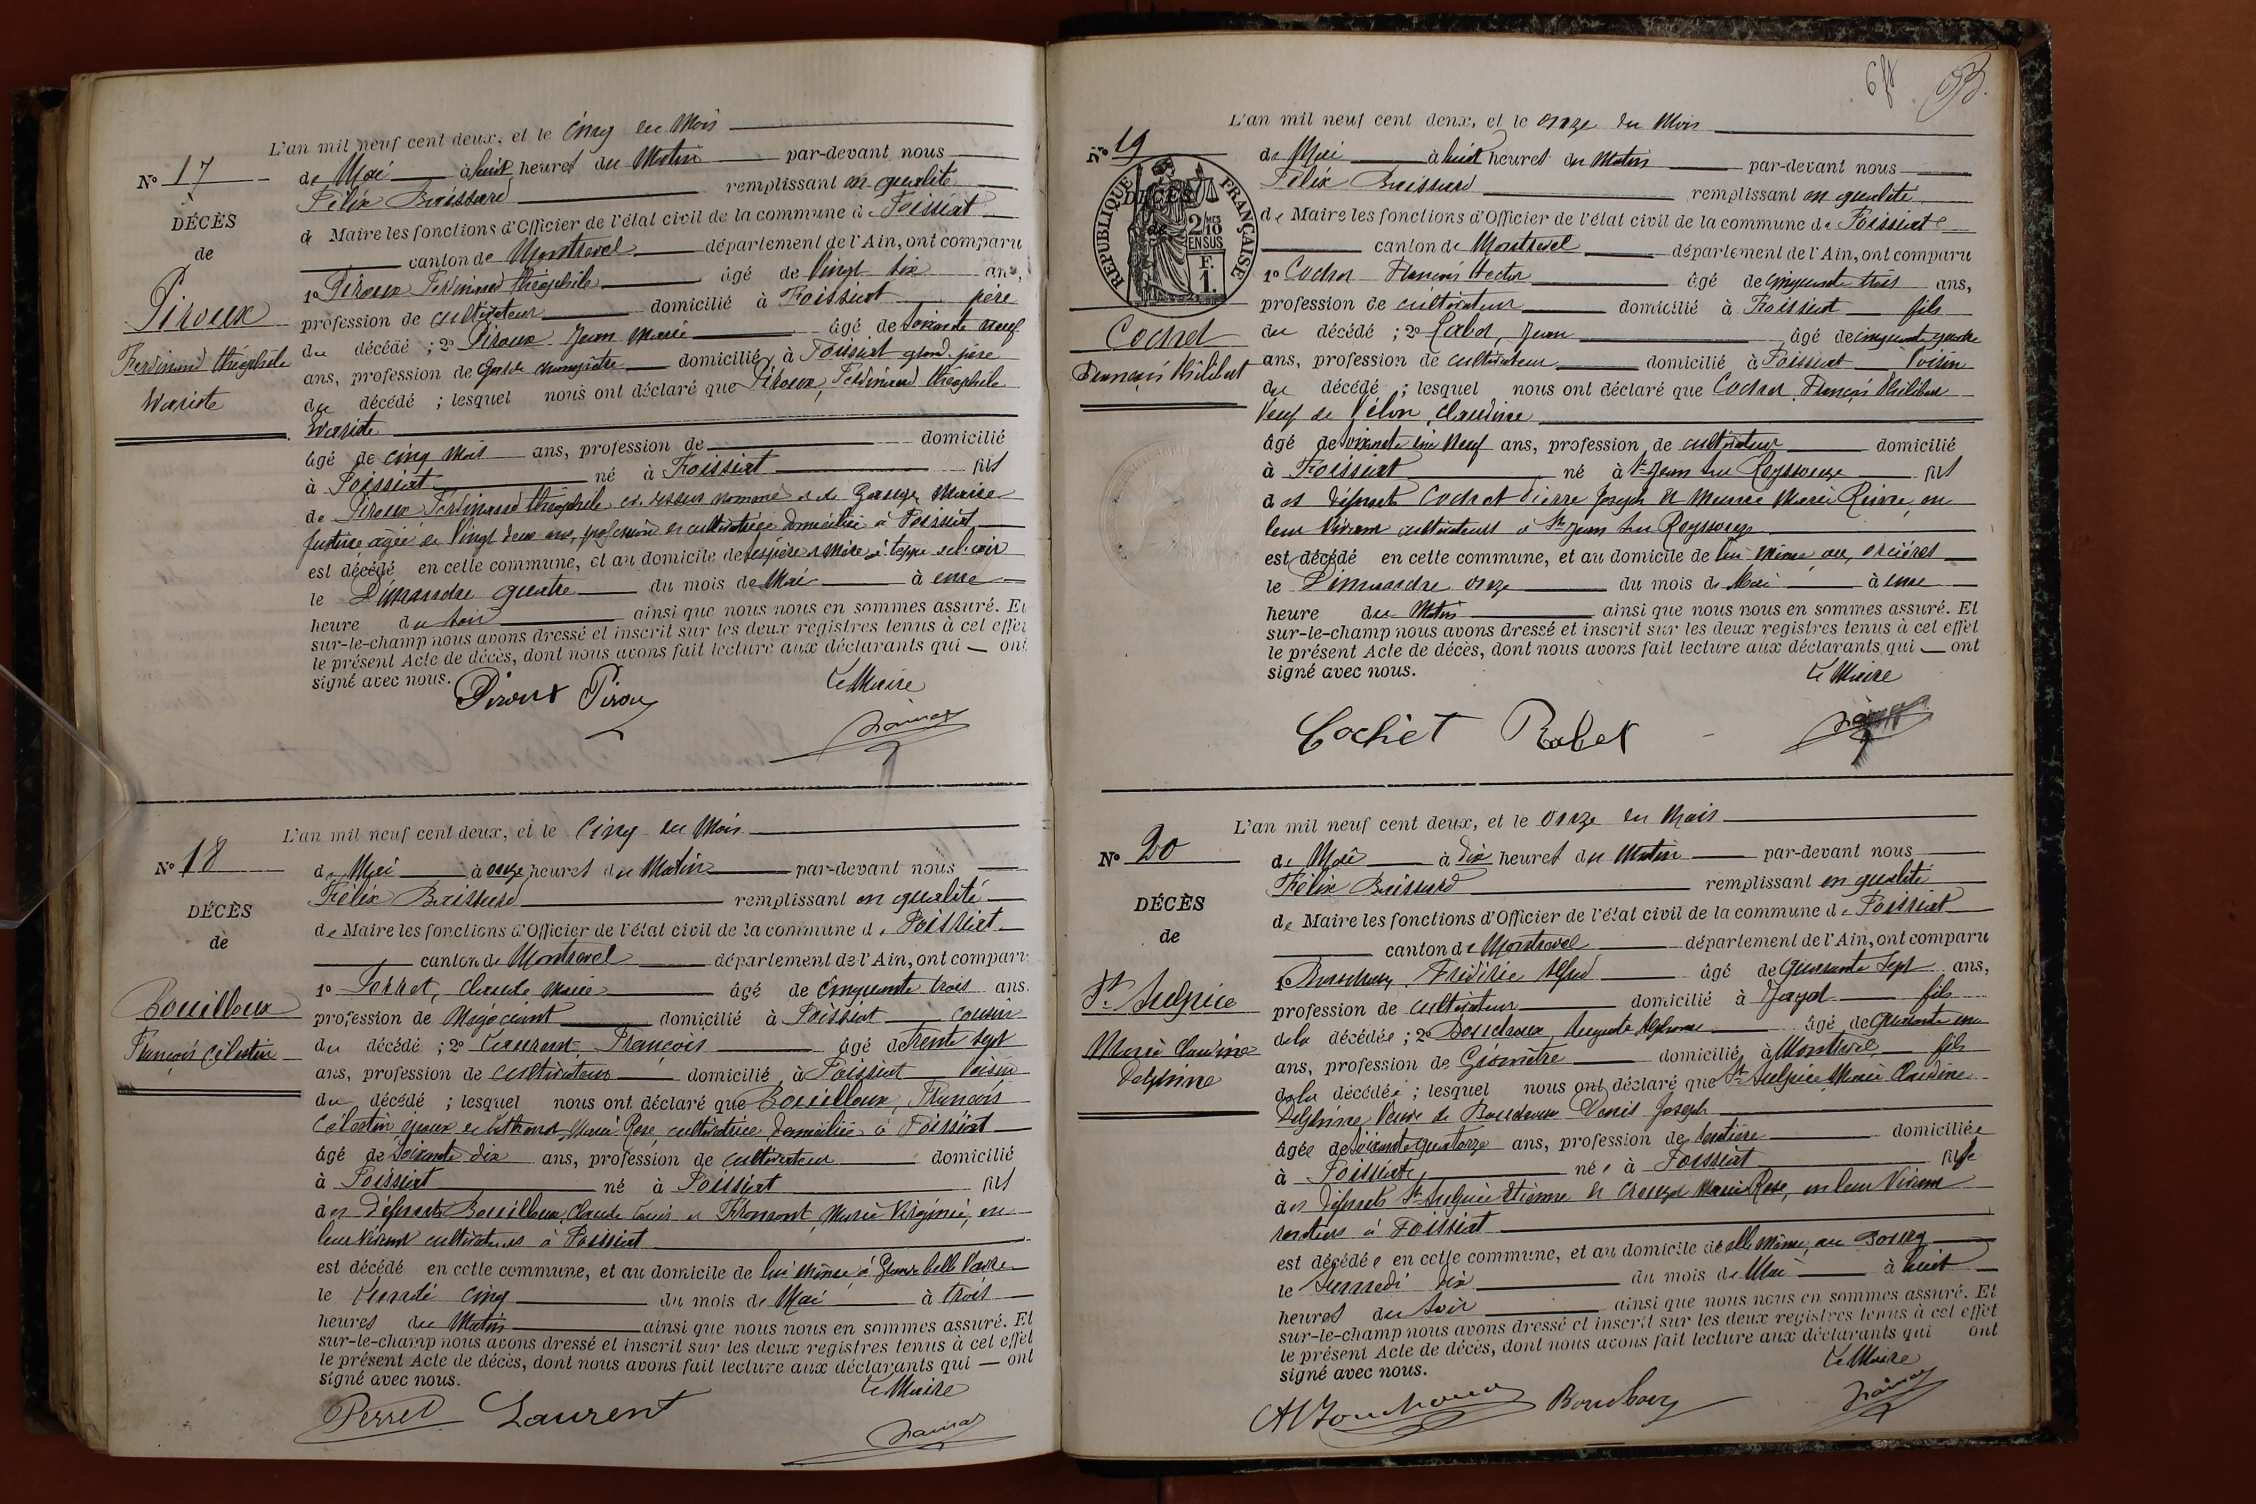 L'an mil neuf cent deux, et le cinq du Mois
N° 17
de Mai à huit heures du Matin par-devant nous
Félix Buissard remplissant en qualité
DÉCÈS
de Maire les fonctions d'Officier de l'état civil de la commune de Foissiat
de
canton de Montrevel département de l'Ain, ont comparu
1° Piroux Ferdinand théophile âgé de Vingt six ans,
Piroux
profession de cultivateur domicilié à Foissiat père
du décédé ; 2° Piroux Jean Marie âgé de soixante neuf
Ferdinand théophile
ans, profession de Garde champêtre domicilié à Foissiat grand-père
Wariste
du décédé ; lesquel nous ont déclaré que Piroux, Ferdinand théophile
Wariste
âgé de cinq mois ans, profession de domicilié
à Foissiat né à Foissiat fils
de Piroux Ferdinand théophile ci-dessus nommé et de Marie
Justine agée de Vingt deux ans, profession de cultivatrice domiciliée à Foissiat
est décédé en cette commune, et au domicile de ses père et mère à
le Dimanche quatre du mois de Mai à une
heure du soir ainsi que nous nous en sommes assuré. Et
sur-le-champ nous avons dressé et inscrit sur les deux registres tenus à cet effet
le présent Acte de décès, dont nous avons fait lecture aux déclarants qui ont
signé avec nous.
Le Maire
Piroux Piroux
L'an mil neuf cent deux, et le Cinq du Mois
N° 18
de Mai à onze heures du Matin par-devant nous
Félix Buissard remplissant en qualité
DÉCÈS
de Maire les fonctions d'Officier de l'état civil de la commune de Foissiat
de
canton de Montrevel département de l'Ain, ont comparu
1° Perret, Claude Marie âgé de Cinquante trois ans.
Bouilloux
profession de Négociant domicilié à Foissiat cousin
François Célestin
du décédé ; 2° Laurent François âgé de trente sept
ans, profession de cultivateur domicilié à Foissiat voisin
du décédé ; lesquel nous ont déclaré que Bouilloux, François
Célestin époux de Marie Rose cultivatrice domiciliée à Foissiat
âgé de Soixante dix ans, profession de cultivateur domicilié
à Foissiat né à Foissiat fils
des Défunts Bouilloux, Claude Louis et Fromont Marie Virginie, en
leur vivant cultivateurs à Foissiat
est décédé en cette commune, et au domicile de lui même à
le Lundi cinq du mois de Mai à trois
heures du Matin ainsi que nous nous en sommes assuré. Et
sur-le-champ nous avons dressé et inscrit sur les deux registres tenus à cet effet
le présent Acte de décès, dont nous avons fait lecture aux déclarants qui ont
signé avec nous.
Le Maire
Perret Laurent
L'an mil neuf cent deux, et le onze du Mois
N° 19
de Mai à huit heures du Matin par-devant nous
Félix Buissard remplissant en qualité
RÉPUBLIQUE FRANÇAISE
DÉCÈS
de
2/10 MES
EN SUS
F.
1.
de Maire les fonctions d'Officier de l'état civil de la commune de Foissiat
canton de Montrevel département de l'Ain, ont comparu
1° Cochet François Hector âgé de cinquante trois ans,
profession de cultivateur domicilié à Foissiat fils
Cochet
du décédé ; 2° Rabet, Jean âgé de cinquante quatre
François Philibert
ans, profession de cultivateur domicilié à Foissiat voisin
du décédé ; lesquel nous ont déclaré que Cochet, François Philibert
veuf de Claudine
âgé de ans, profession de cultivateur domicilié
à Foissiat né à St Jean sur Reyssouze fils
des défunts Cochet Pierre Joseph et Marie en
leur vivant cultivateurs à St Jean sur Reyssouze
est décédé en cette commune, et au domicile de lui même
le Dimanche onze du mois de Mai à une
heure du Matin ainsi que nous nous en sommes assuré. Et
sur-le-champ nous avons dressé et inscrit sur les deux registres tenus à cet effet
le présent Acte de décès, dont nous avons fait lecture aux déclarants qui ont
signé avec nous.
Le Maire
Cochet Rabet
L'an mil neuf cent deux, et le onze du Mois
N° 20
de Mai à dix heures du Matin par-devant nous
Félix Buissard remplissant en qualité
DÉCÈS
de Maire les fonctions d'Officier de l'état civil de la commune de Foissiat
de
canton de Montrevel département de l'Ain, ont comparu
1° Boucheoux, Frédéric Alfred âgé de Quarante sept ans,
St Sulpice
profession de cultivateur domicilié à Jayat fils
Marie Claudine
Delphine
de la décédée ; 2° Auguste Alphonse âgé de Quarante un
ans, profession de Géomètre domicilié à Montrevel fils
de la décédée ; lesquel nous ont déclaré que St Sulpice Marie Claudine
Delphine Veuve de Denis Joseph
âgée de soixante quatorze ans, profession de rentière domiciliée
à Foissiat née à Foissiat fille
des défunts St Sulpice Etienne et Creuzet Marie Rose, en leur Vivant
rentiers à Foissiat
est décédée en cette commune, et au domicile de elle même, au Bourg
le Samedi dix du mois de Mai à huit
heures du soir ainsi que nous nous en sommes assuré. Et
sur-le-champ nous avons dressé et inscrit sur les deux registres tenus à cet effet
le présent Acte de décès, dont nous avons fait lecture aux déclarants qui ont
signé avec nous.
Le Maire